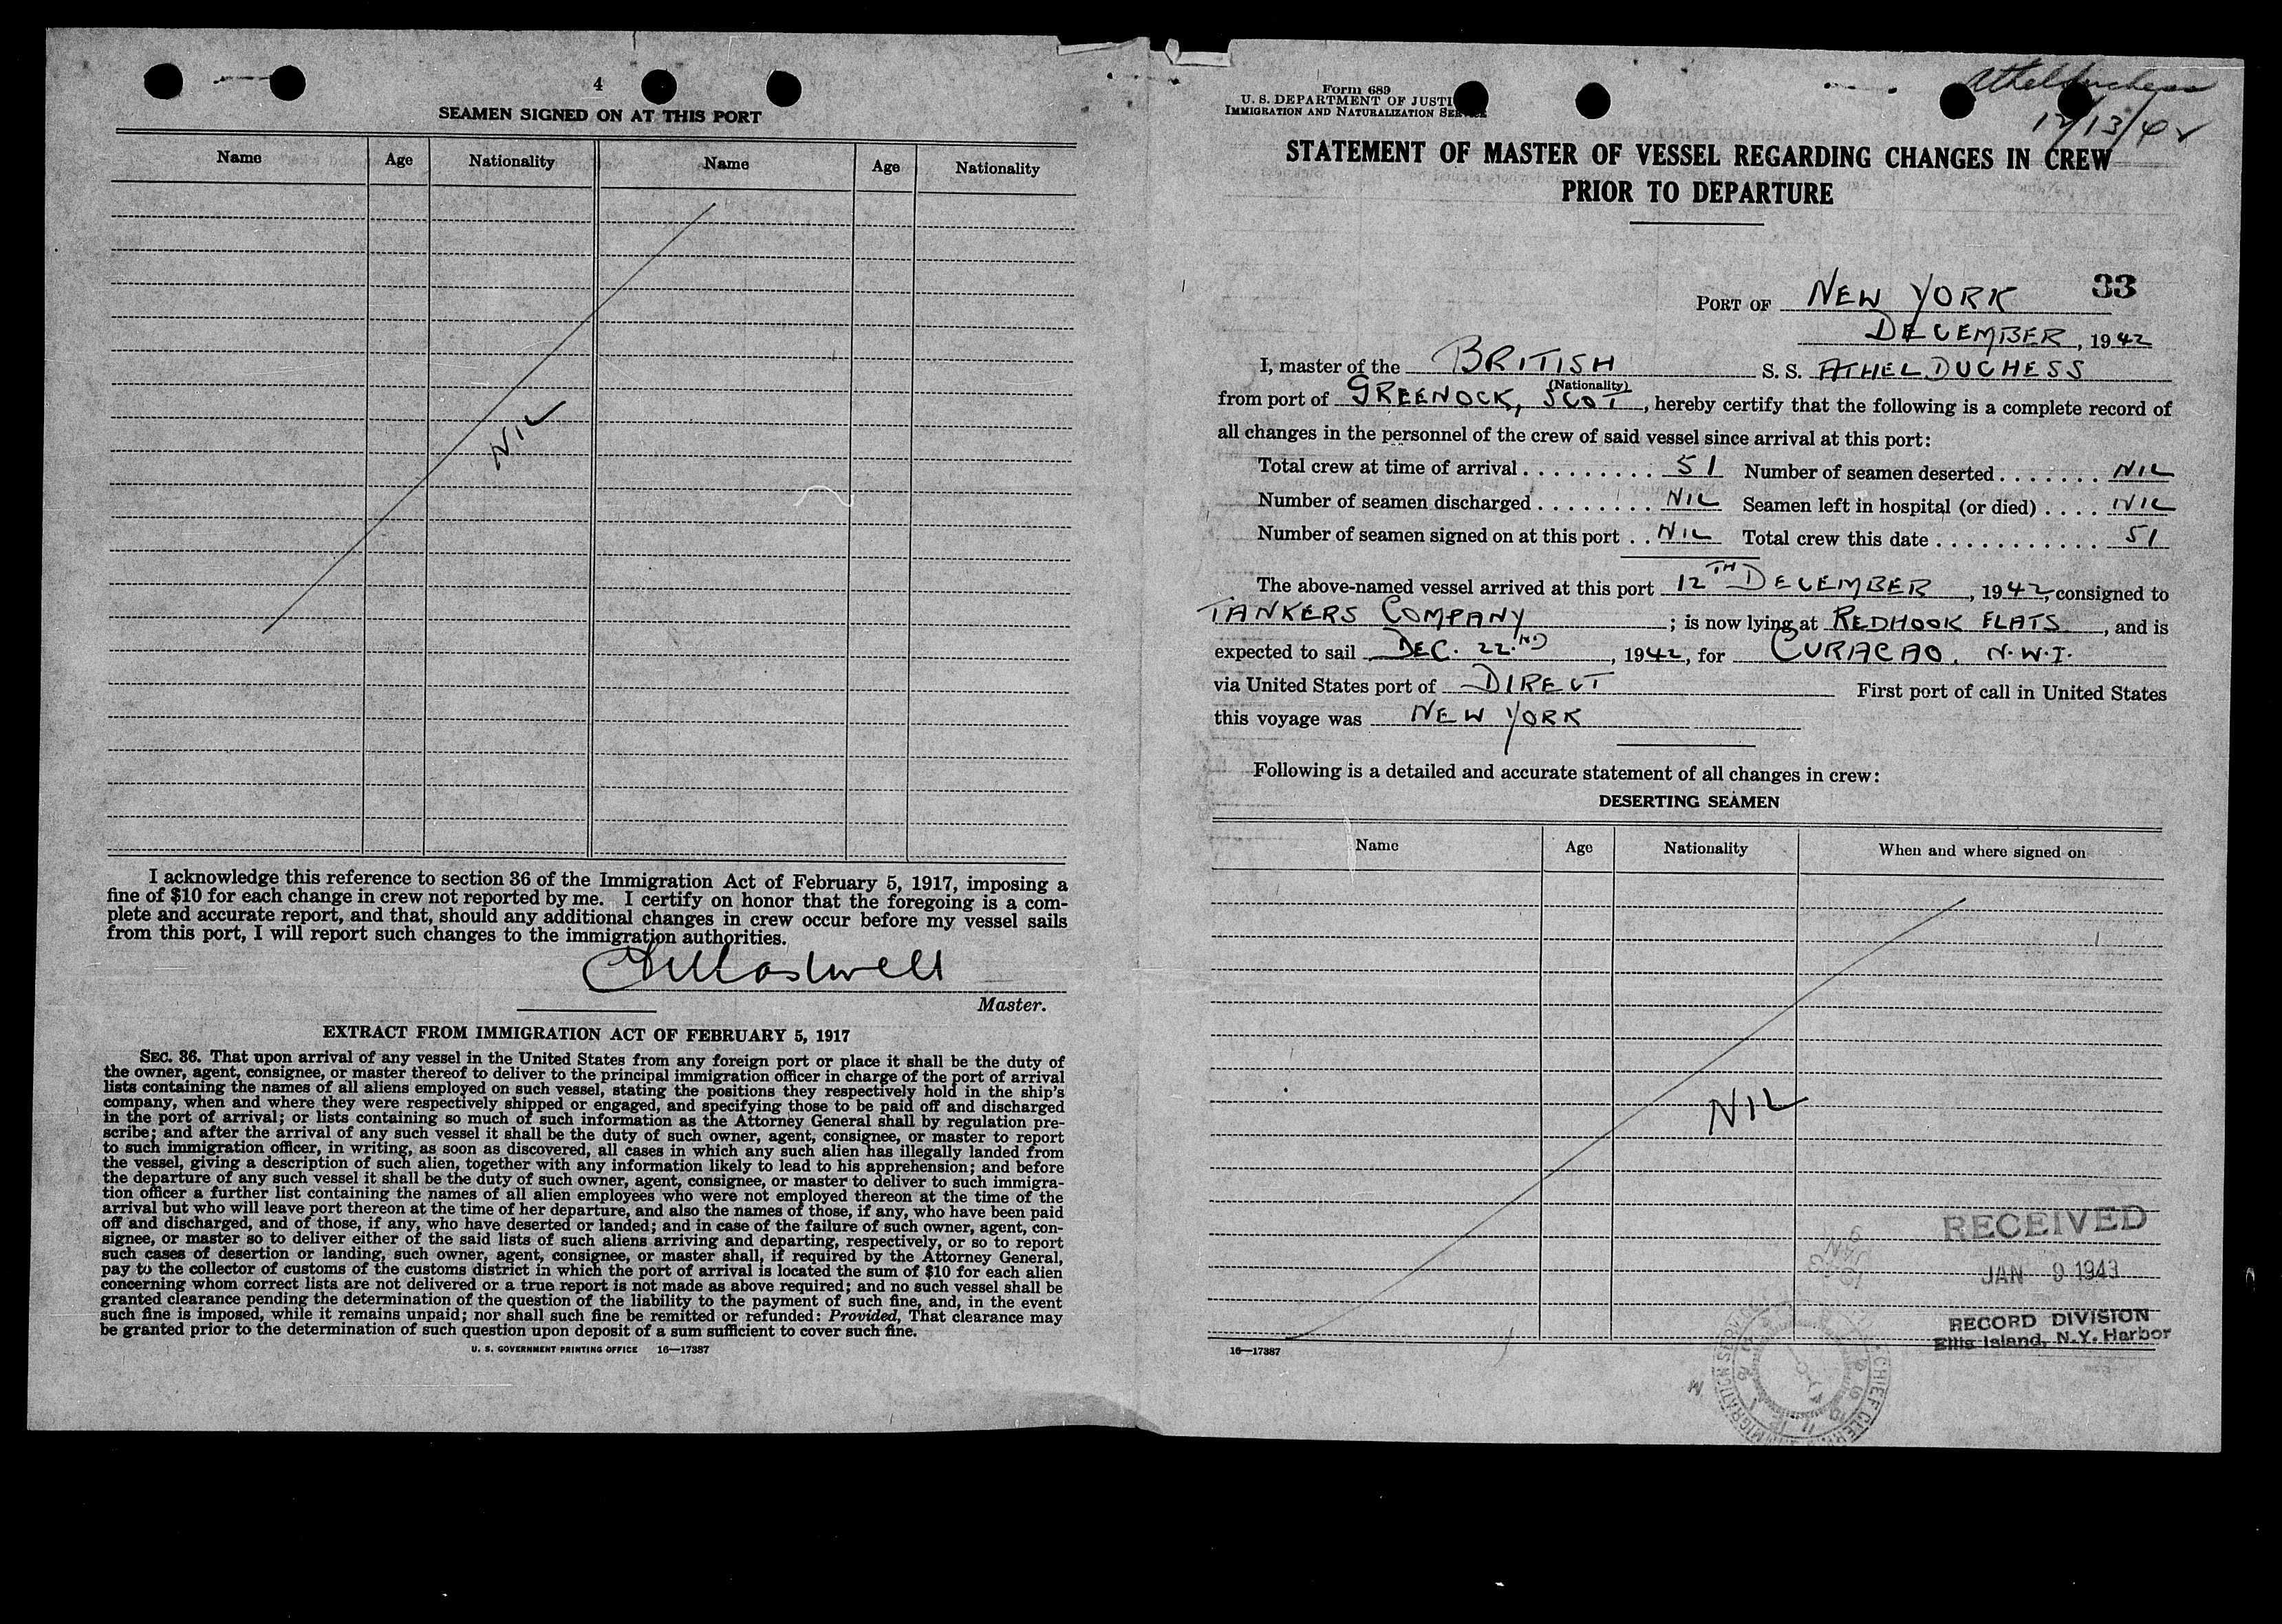 4
SEAMEN SIGNED ON AT THIS PORT
Name Age Nationality Name Age Nationality
NIL
I acknowledge this reference to section 36 of the Immigration Act of February 5, 1917, imposing a
fine of $10 for each change in crew not reported by me. I certify on honor that the foregoing is a com-
plete and accurate report, and that, should any additional changes in crew occur before my vessel sails
from this port, I will report such changes to the immigration authorities.
Master.
EXTRACT FROM IMMIGRATION ACT OF FEBRUARY 5, 1917
SEC. 36. That upon arrival of any vessel in the United States from any foreign port or place it shall be the duty of
the owner, agent, consignee, or master thereof to deliver to the principal immigration officer in charge of the port of arrival
lists containing the names of all aliens employed on such vessel, stating the positions they respectively hold in the ship's
company, when and where they were respectively shipped or engaged, and specifying those to be paid off and discharged
in the port of arrival; or lists containing so much of such information as the Attorney General shall by regulation pre-
scribe; and after the arrival of any such vessel it shall be the duty of such owner, agent, consignee, or master to report
to such immigration officer, in writing, as soon as discovered, all cases in which any such alien has illegally landed from
the vessel, giving a description of such alien, together with any information likely to lead to his apprehension; and before
the departure of any such vessel it shall be the duty of such owner, agent, consignee, or master to deliver to such immigra-
tion officer a further list containing the names of all alien employees who were not employed thereon at the time of the
arrival but who will leave port thereon at the time of her departure, and also the names of those, if any, who have been paid
off and discharged, and of those, if any, who have deserted or landed; and in case of the failure of such owner, agent, con-
signee, or master so to deliver either of the said lists of such aliens arriving and departing, respectively, or so to report
such cases of desertion or landing, such owner, agent, consignee, or master shall, if required by the Attorney General,
pay to the collector of customs of the customs district in which the port of arrival is located the sum of $10 for each alien
concerning whom correct lists are not delivered or a true report is not made as above required; and no such vessel shall be
granted clearance pending the determination of the question of the liability to the payment of such fine, and, in the event
such fine is imposed, while it remains unpaid; nor shall such fine be remitted or refunded: Provided, That clearance may
be granted prior to the determination of such question upon deposit of a sum sufficient to cover such fine.
U. S. GOVERNMENT PRINTING OFFICE 16—17387
Form 689
U. S. DEPARTMENT OF JUSTI
IMMIGRATION AND NATURALIZATION SERVICE
Athelduchess
12/13/42
STATEMENT OF MASTER OF VESSEL REGARDING CHANGES IN CREW
PRIOR TO DEPARTURE
33
PORT OF NEW YORK
DECEMBER, 1942
I, master of the BRITISH S. S. ATHEL DUCHESS
(Nationality)
from port of GREENOCK, SCOT, hereby certify that the following is a complete record of
all changes in the personnel of the crew of said vessel since arrival at this port:
Total crew at time of arrival . . . . . . . . . 51 Number of seamen deserted . . . . . . . NIL
Number of seamen discharged . . . . . . . . NIL Seamen left in hospital (or died) . . . . NIL
Number of seamen signed on at this port . . NIL Total crew this date . . . . . . . . . . . . 51
The above-named vessel arrived at this port 12TH DECEMBER, 1942, consigned to
TANKERS COMPANY; is now lying at REDHOOK FLATS, and is
expected to sail DEC. 22.ND, 1942, for CURACAO. N.W.I.
via United States port of DIRECT First port of call in United States
this voyage was NEW YORK
Following is a detailed and accurate statement of all changes in crew:
DESERTING SEAMEN
Name Age Nationality When and where signed on
NIL
RECEIVED
JAN 9 1943
RECORD DIVISION
Ellis Island, N.Y. Harbor
16—17387